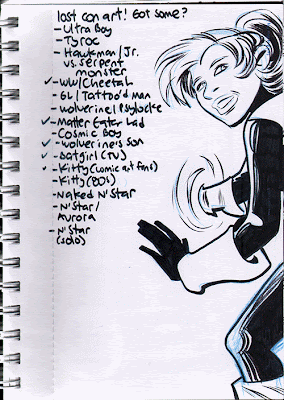 lost con art! Got some?
- Ultra Boy
- Tyroc
- Hawkman/Jr.
vs. serpent
monster
✓- WW/Cheetah
- GL/Tattoo'd Man
- Wolverine/Psylocke
✓- Matter Eater Lad
- Cosmic Boy
✓- wolverine's son
✓- Batgirl (TV)
✓- Kitty (comic art fans)
- Kitty (80s)
- Naked N'Star
- N'Star/
Aurora
- N'Star
(solo)